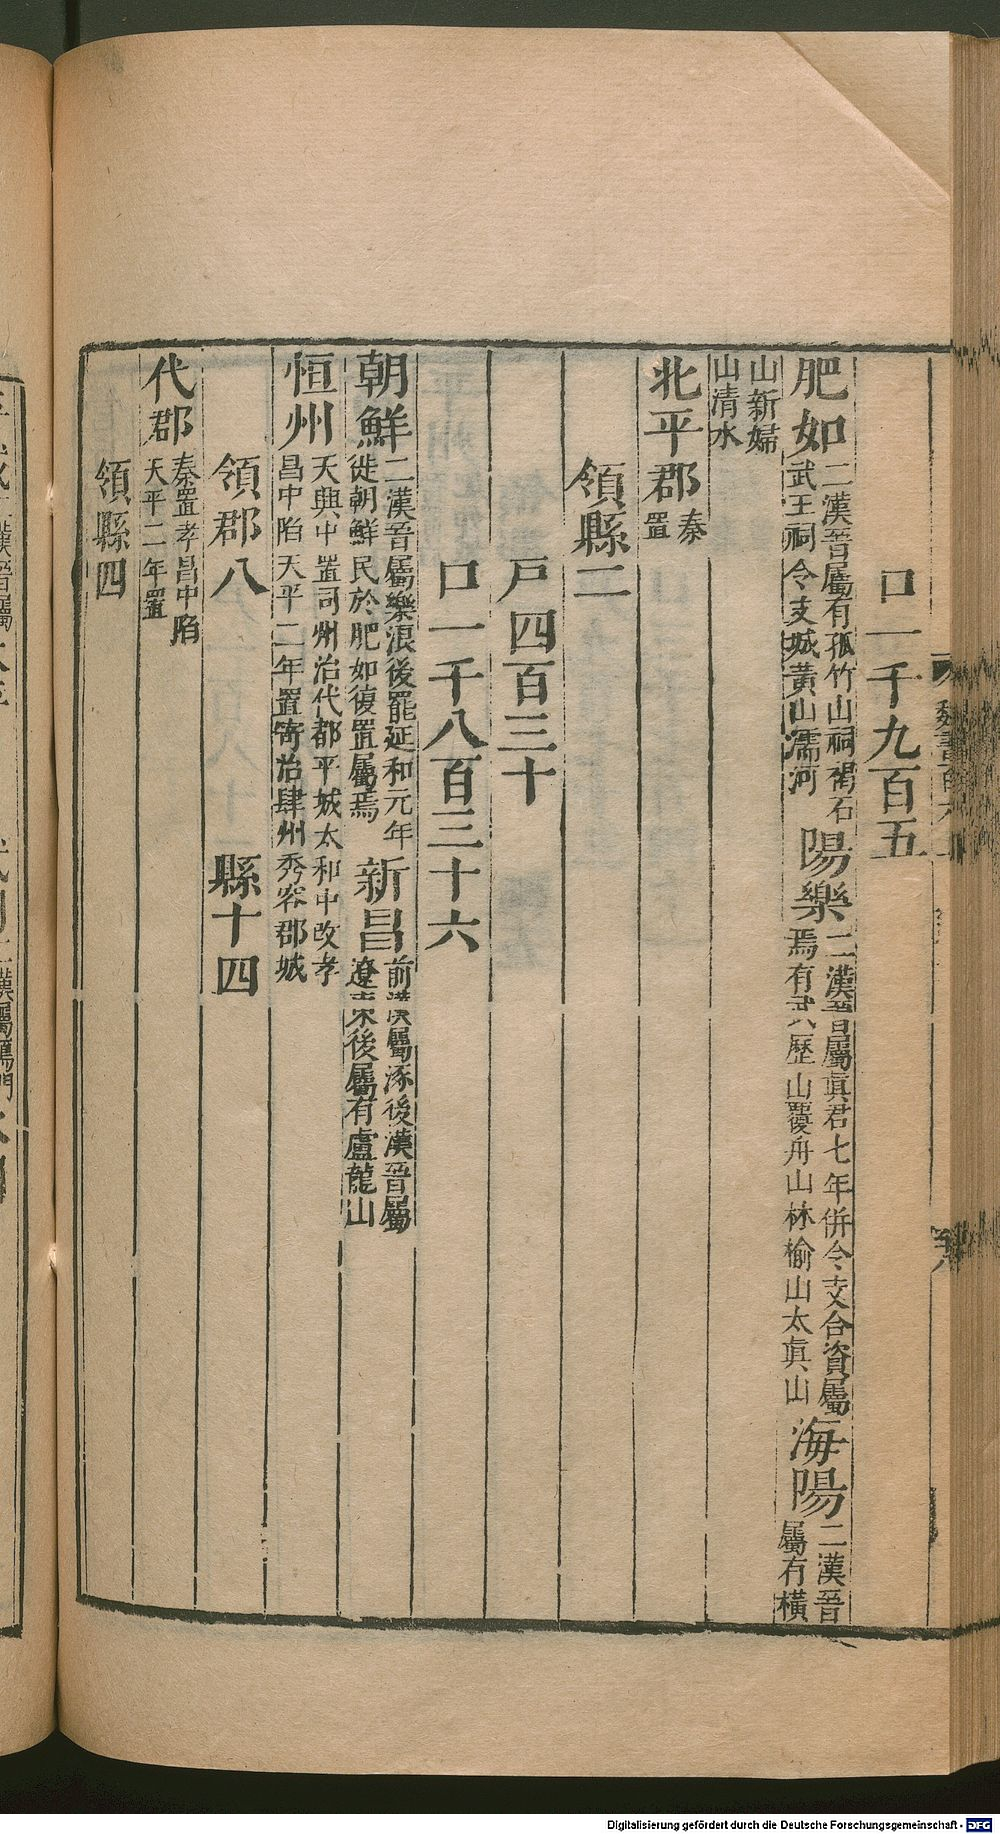 口一千九百五
肥如二漢晉屬有孤竹山祠碣石武王祠令支城黃山濡河陽樂二漢晉屬真君七年併令支合資屬焉有武歷山覆舟山林榆山太真山海陽二漢晉屬有橫
山新婦山清水
北平郡秦置
領縣二
戸四百三十
口一千八百三十六
朝鮮二漢晉屬樂浪後罷延和元年徙朝鮮民於肥如復置屬焉新昌前漢屬涿後漢晉屬遼東後屬有盧龍山
恒州天興中置司州治代都平城太和中改孝昌中陷天平二年置寄治肆州秀容郡城
領郡八 縣十四
代郡秦置孝昌中陷天平二年置
領縣四
Digitalisierung gefördert durch die Deutsche Forschungsgemeinschaft - DFG